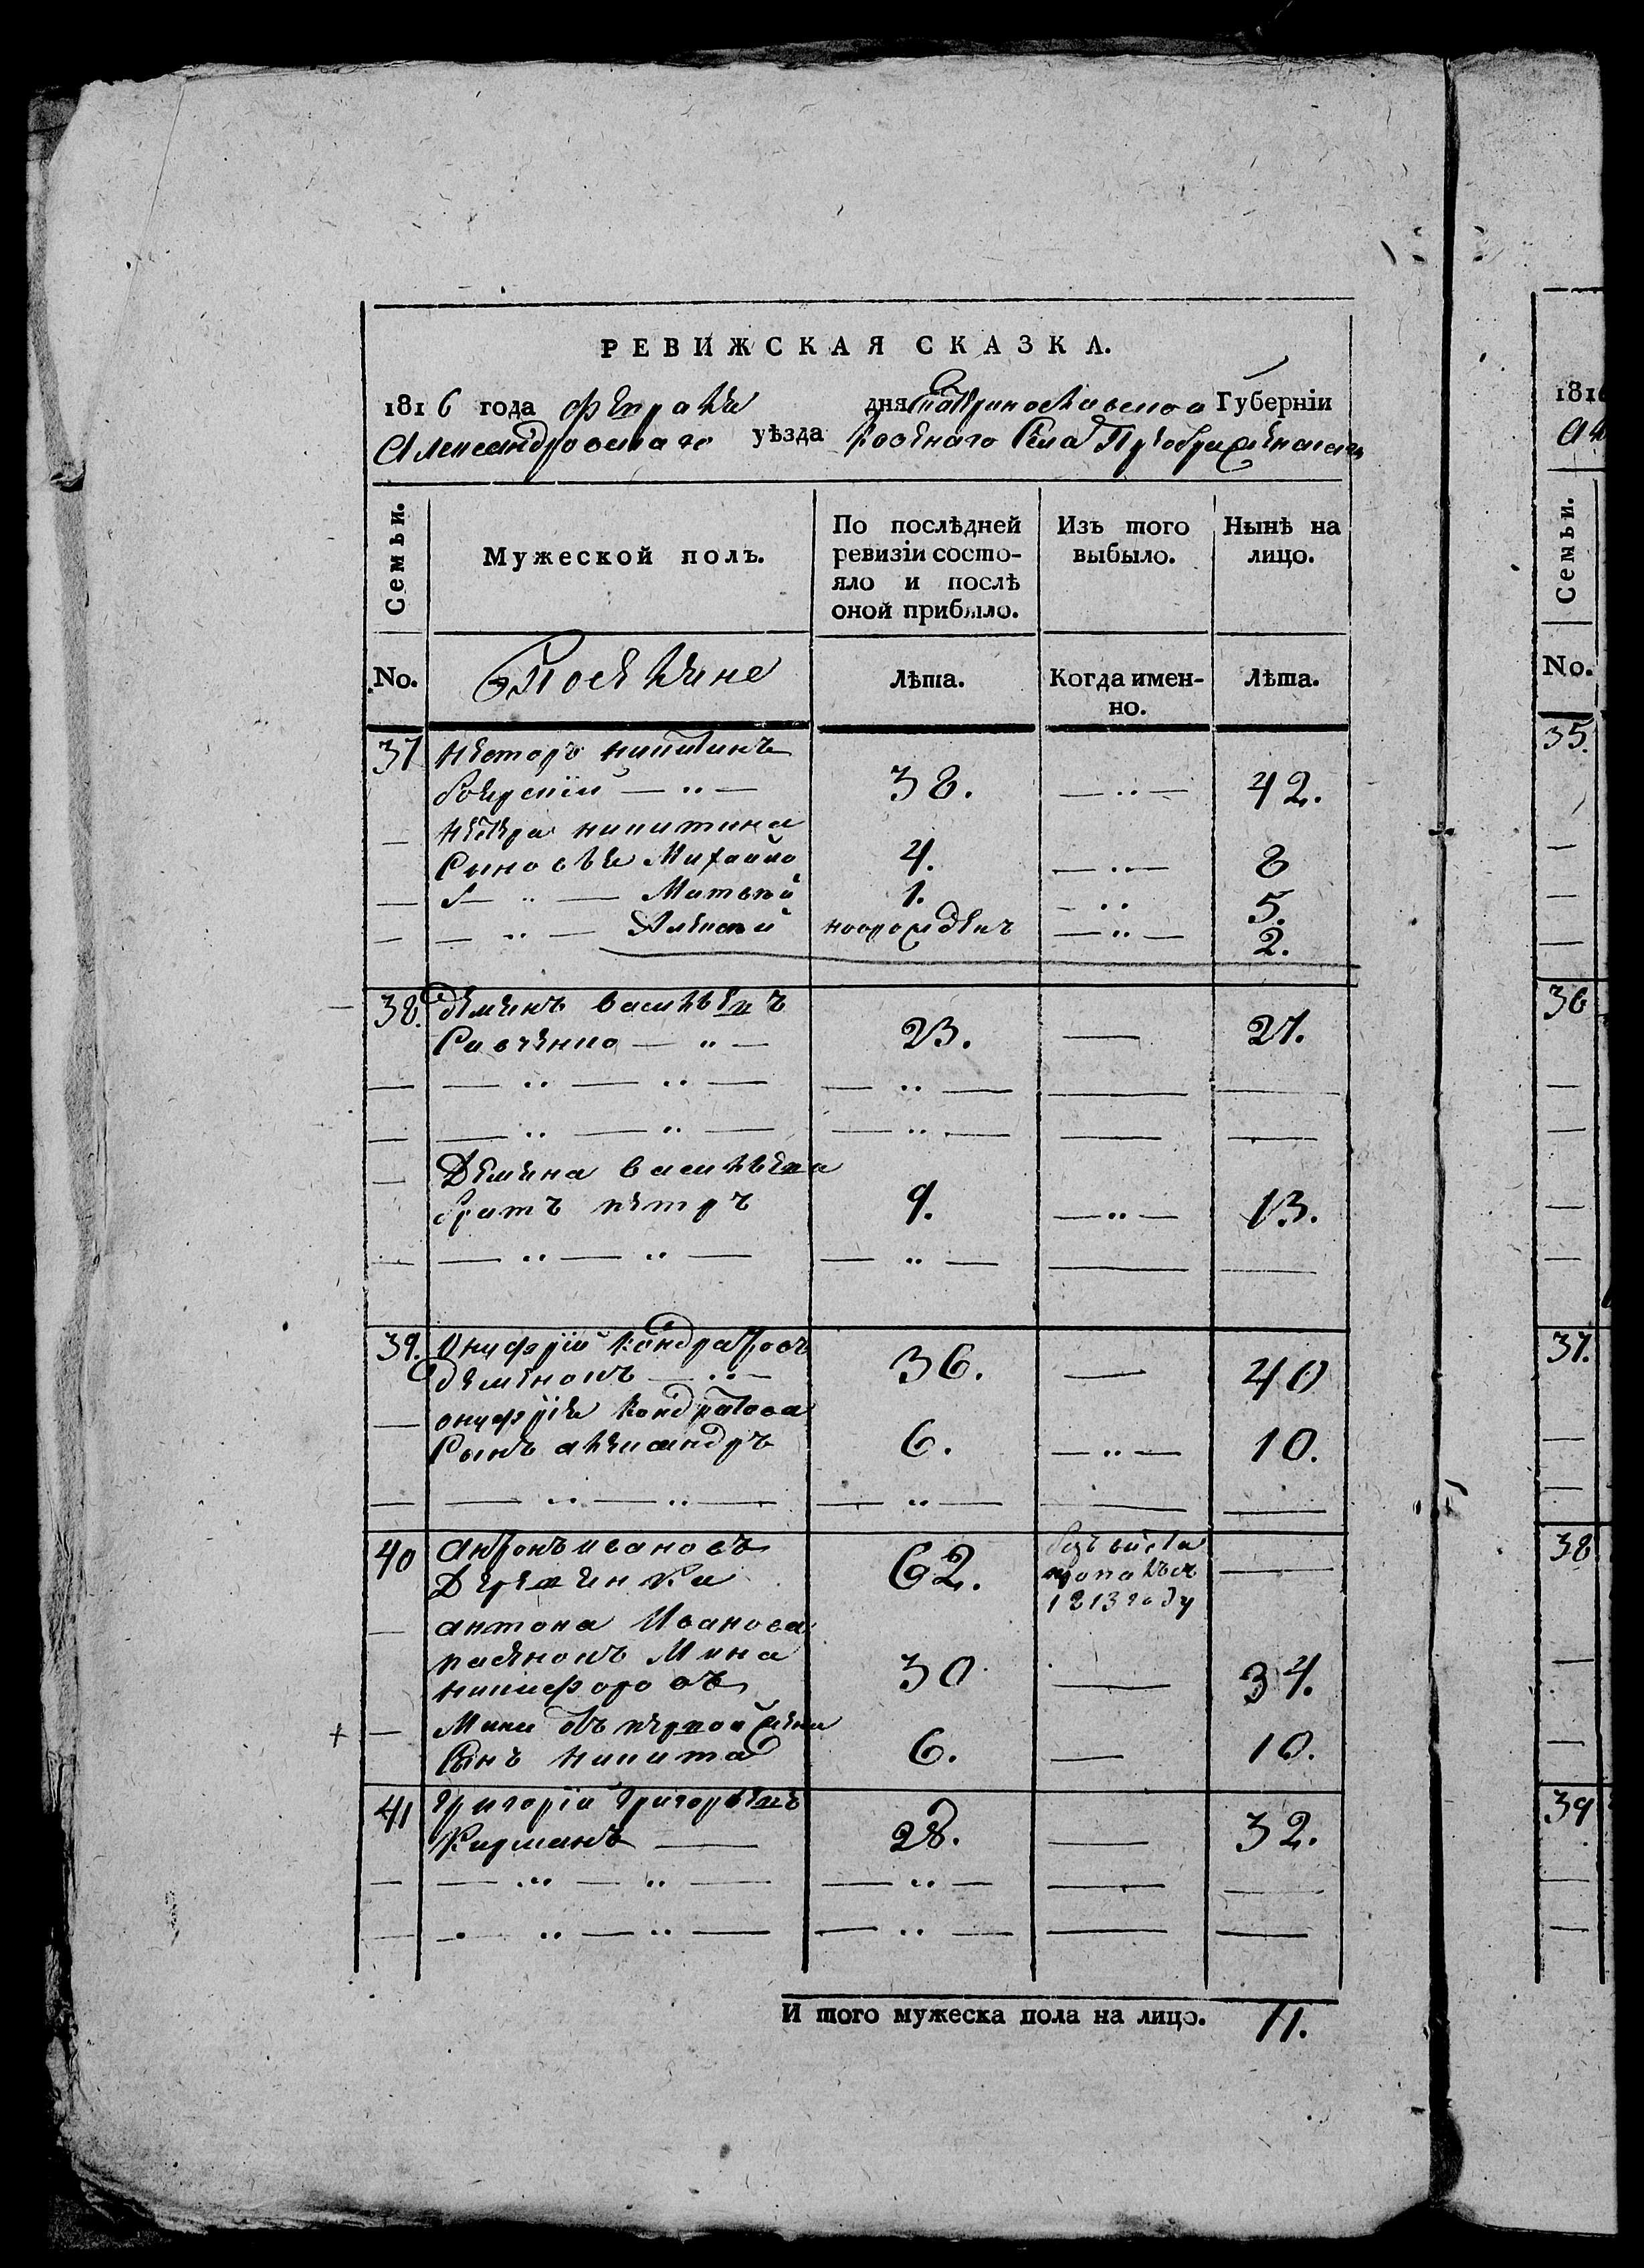 РЕВИЖСКАЯ СКАЗКА.
1816 года февраля дня Екатеринославской Губерніи
Александровскаго уѣзда Казеннаго Села Преображенскаго
Семьи.
Мужеской полъ.
По послѣдней ревизіи состояло и послѣ оной прибыло.
Изъ того выбыло.
Нынѣ на лицо.
No.
Поселяне
Лѣта.
Когда именно.
Лѣта.
37 Несторъ никитинъ
38. 42.
Нестера никитина
Сыновья Михайло 4. 8
Матвѣй 1. 5.
Алексѣй новорожденъ 2.
38. Деминъ васильевъ
Савченко 23. 27.
Демина васильева
братъ петръ 9. 13.
39. Онуфрій Кондратовъ
Деменокъ 36. 40
онуфрія Кондратова
Сынъ александръ 6. 10.
40 антонъ ивановъ
62. безъ вѣсти
1813 году
антона Иванова
пасенокъ Мина
никифоровъ 30 34.
Мины отъ первой жены
Сынъ никита 6. 10.
41 Григорій Григорьевъ
Кирманъ 28. 32.
И того мужеска пола на лицо. 11.
181
Семьи.
No.
35.
36
37.
38
39